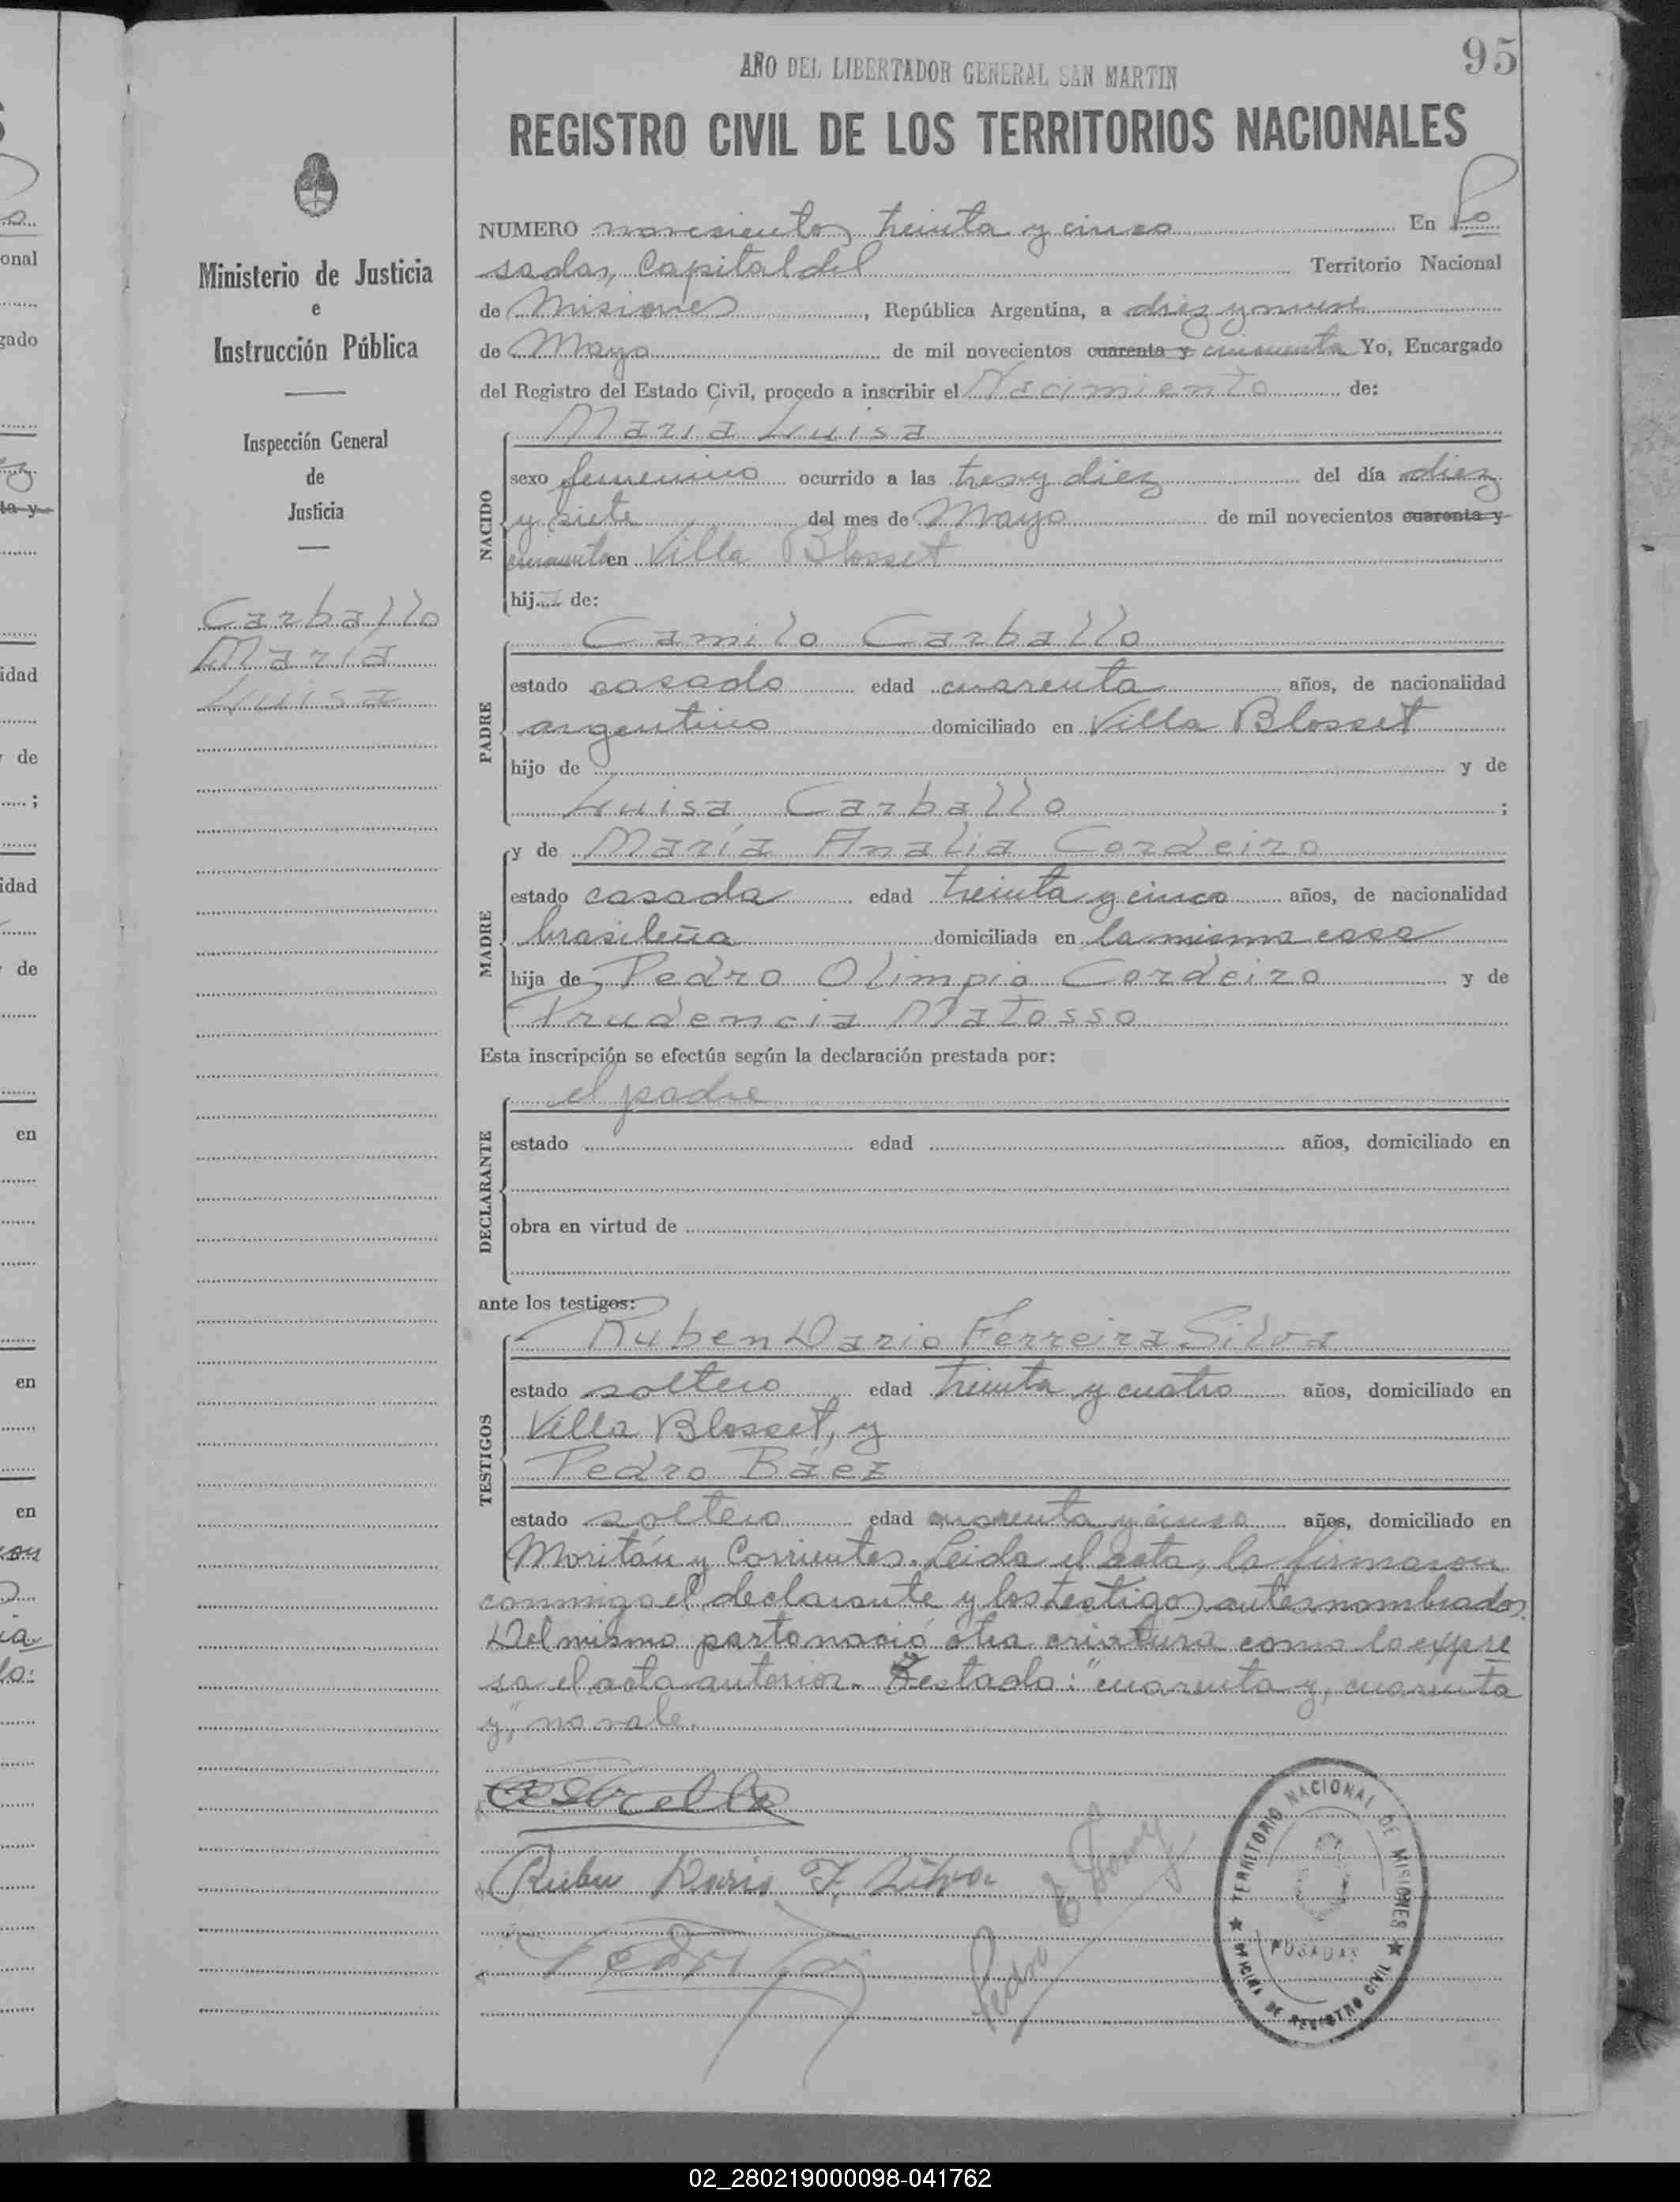 95
AÑO DEL LIBERTADOR GENERAL SAN MARTIN
REGISTRO CIVIL DE LOS TERRITORIOS NACIONALES
Ministerio de Justicia
e
Instrucción Pública
Inspección General
de
Justicia
Carballo
María
Luisa
NUMERO novecientos treinta y cinco En Po
sadas, Capital del Territorio Nacional
de Misiones, República Argentina, a diez y nueve
de Mayo de mil novecientos cuarenta y cincuenta Yo, Encargado
del Registro del Estado Civil, procedo a inscribir el Nacimiento de:
NACIDO
María Luisa
sexo femenino ocurrido a las tres y diez del día diez
y siete del mes de Mayo de mil novecientos cuarenta y
cincuenta en Villa Blosset
hija de:
PADRE
Camilo Carballo
estado casado edad cuarenta años, de nacionalidad
argentino domiciliado en Villa Blosset
hijo de y de
Luisa Carballo ;
MADRE
y de María Analia Cordeiro
estado casada edad treinta y cinco años, de nacionalidad
brasileña domiciliada en la misma casa
hija de Pedro Olimpio Cordeiro y de
Prudencia Matosso
Esta inscripción se efectúa según la declaración prestada por:
DECLARANTE
el padre
estado edad años, domiciliado en
obra en virtud de
ante los testigos:
TESTIGOS
Ruben Dario Ferreira Silva
estado soltero edad treinta y cuatro años, domiciliado en
Villa Blosset, y
Pedro Báez
estado soltero edad cuarenta y cinco años, domiciliado en
Moritán y Corrientes. Leida el acta, la firmaron
conmigo el declarante y los testigos antes nombrados.
Del mismo parto nació otra criatura como lo expre
sa el acta anterior. Testado: "cuarenta y, cuarenta
y," no vale.
Ruben Dario F. Silva
Pedro
TERRITORIO NACIONAL DE MISIONES
POSADAS
OFICINA DE REGISTRO CIVIL
02_280219000098-041762